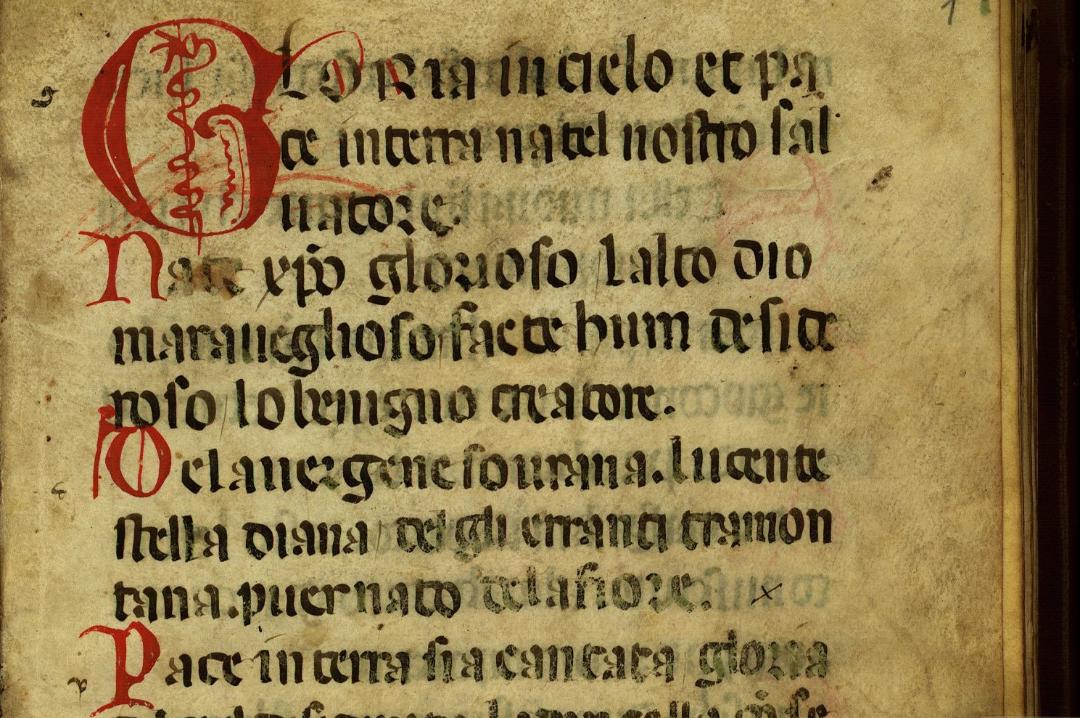 GLORIA in cielo et pa
ce in terra nat el nostro sal
uatore.
Nate xp̄o glorioso lalto dio
maraueglioso facte hum deside
roso lo benigno creatore.
De la uergene sourana. lucente
stella diana del gli erranti tramon
tana. puer nato de la fiore.
Pace in terra sia cantata gloria